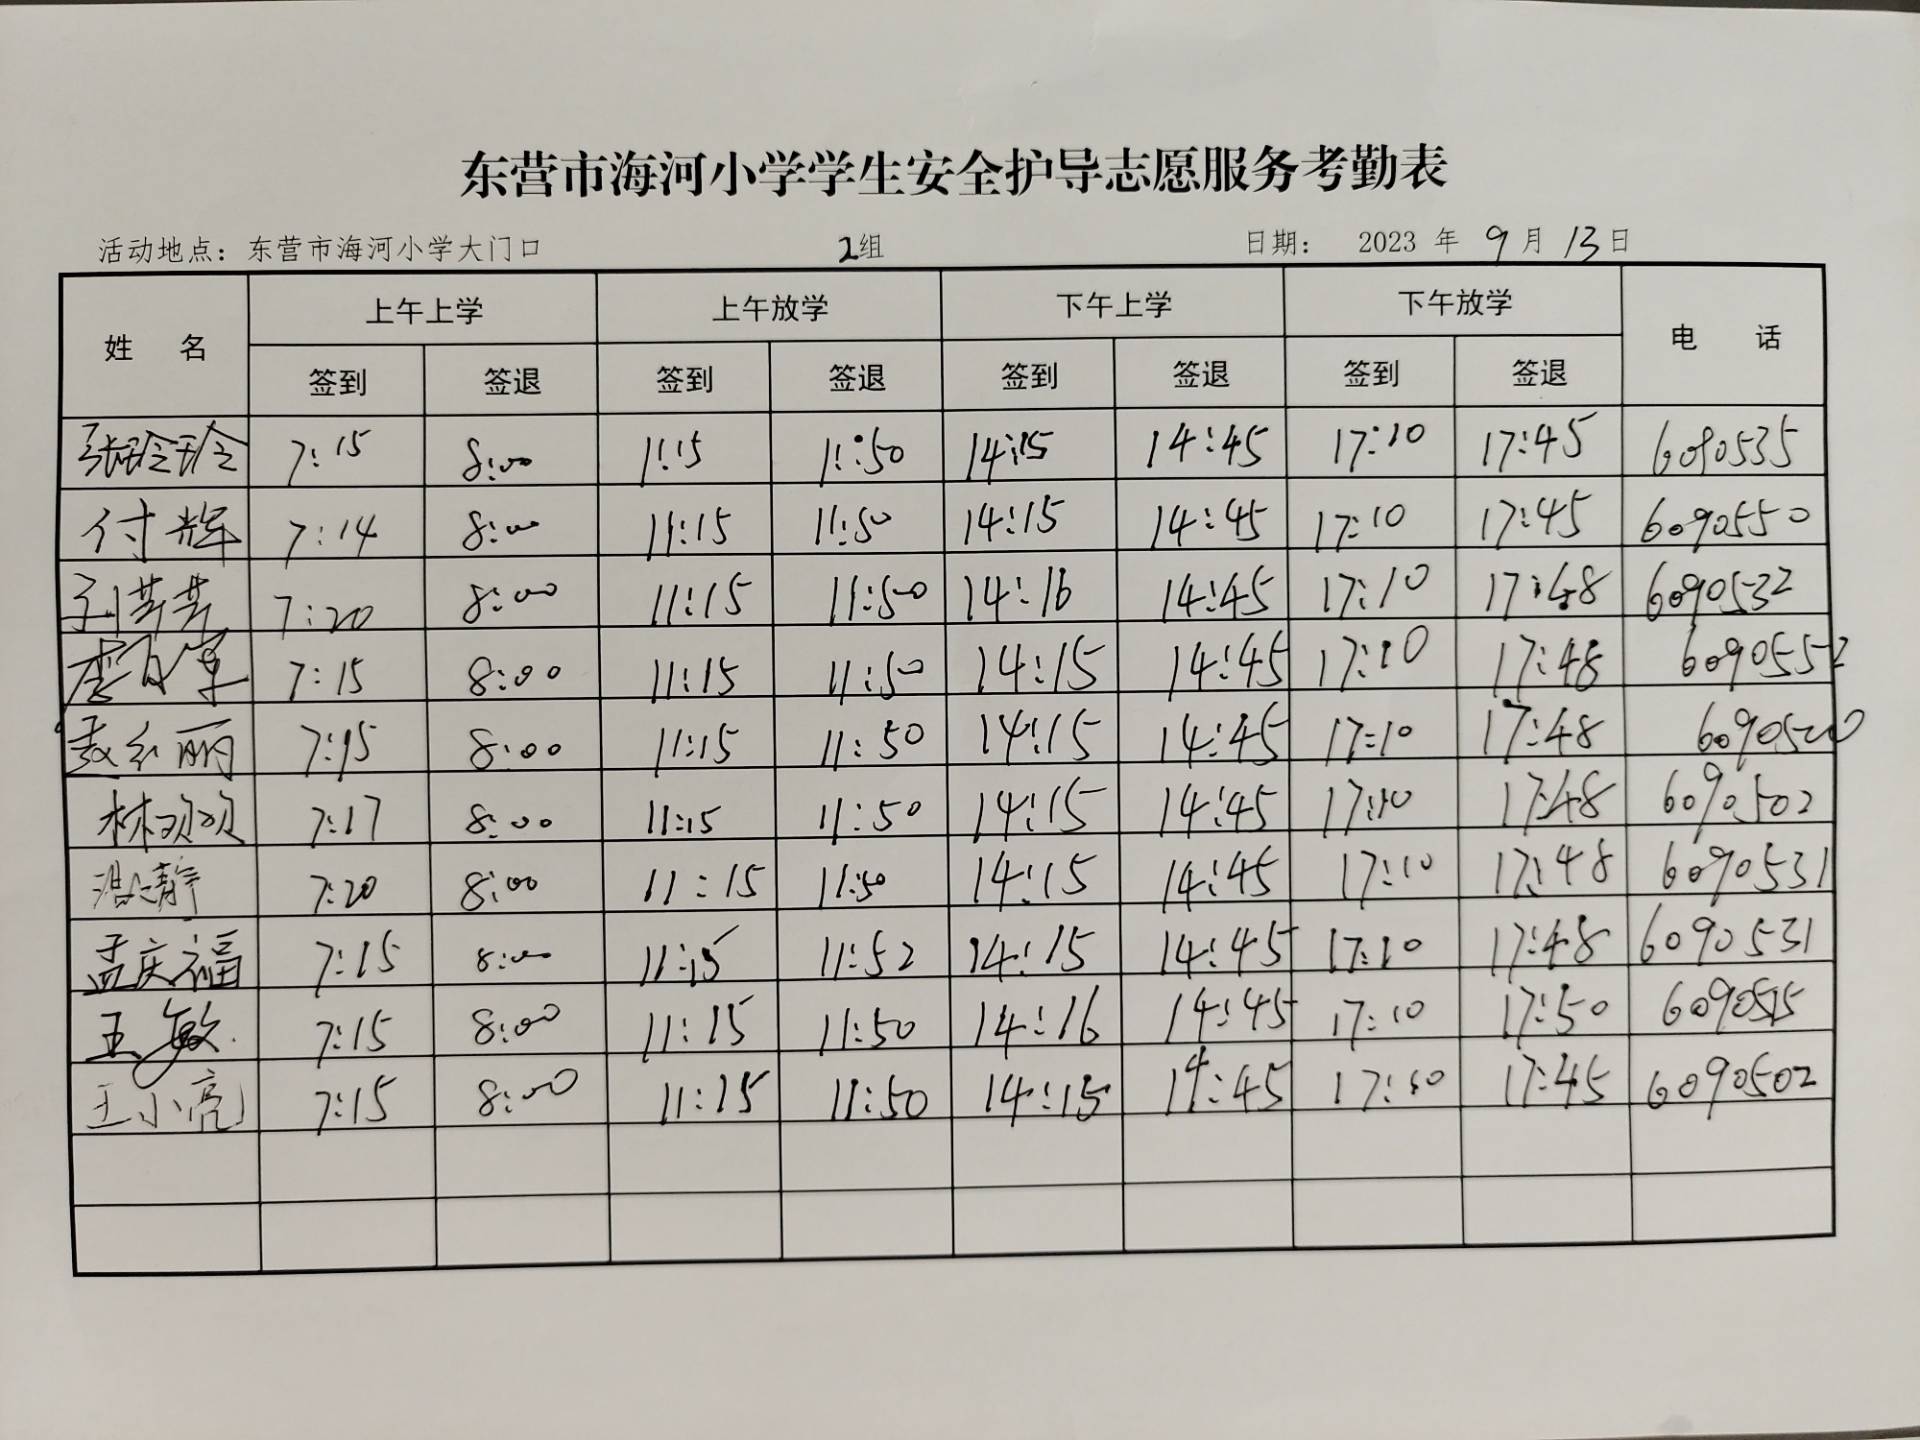 东营市海河小学学生安全护导志愿服务考勤表
活动地点：东营市海河小学大门口 2组 日期： 2023 年 9 月 13 日
姓 名 上午上学 上午放学 下午上学 下午放学 电 话
签到 签退 签到 签退 签到 签退 签到 签退
张玲玲 7:15 8:00 11:15 11:50 14:15 14:45 17:10 17:45 6090535
付辉 7:14 8:00 11:15 11:50 14:15 14:45 17:10 17:45 6090550
7:20 8:00 11:15 11:50 14:16 14:45 17:10 17:48 6090532
7:15 8:00 11:15 11:50 14:15 14:45 17:10 17:48 6090552
赵红丽 7:15 8:00 11:15 11:50 14:15 14:45 17:10 17:48 6090500
林欢欢 7:17 8:00 11:15 11:50 14:15 14:45 17:10 17:48 6090502
7:20 8:00 11:15 11:50 14:15 14:45 17:10 17:48 6090531
孟庆福 7:15 8:00 11:15 11:52 14:15 14:45 17:10 17:48 6090531
王敏 7:15 8:00 11:15 11:50 14:16 14:45 17:10 17:50 6090515
王小亮 7:15 8:00 11:15 11:50 14:15 14:45 17:10 17:45 6090502